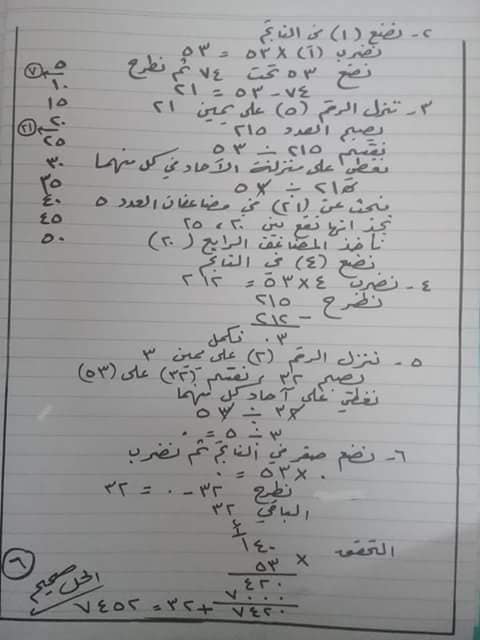 ٢- نضع (١) في الناتج
نضرب (١) × ٥٣ = ٥٣
نضع ٥٣ تحت ٧٤ ثم نطرح
٧٤ - ٥٣ = ٢١
٣- تنزل الرقم (٥) على يمين ٢١
يصبح العدد ٢١٥
نقسم ٢١٥ ÷ ٥٣
نغطي على منزلة الآحاد في كل منهما
٢١٥ ÷ ٥٣
نبحث عن (٢١) في مضاعفات العدد ٥
نجد انها تقع بين ٢٠ ، ٢٥
نأخذ المضاعف الرابع (٢٠)
نضع (٤) في الناتج
٤- نضرب ٤ × ٥٣ = ٢١٢
نطرح ٢١٥
- ٢١٢
٠٣ نكمل
٥- ننزل الرقم (٢) على يمين ٣
يصبح ٣٢ ، نقسم (٣٢) على (٥٣)
نغطي على آحاد كل منهما
٣٢ ÷ ٥٣
٣ ÷ ٥ = ٠
٦- نضع صفر في الناتج ثم نضرب
٠ × ٥٣ = ٠
نطرح ٣٢ - ٠ = ٣٢
الباقي ٣٢
التحقق
١٤٠
× ٥٣
٤٢٠
٧٠٠٠
٧٤٢٠ + ٣٢ = ٧٤٥٢
الحل صحيح
٦
٥ ٧
١٠
١٥
٢٠ ٢١
٢٥
٣٠
٣٥
٤٠
٤٥
٥٠